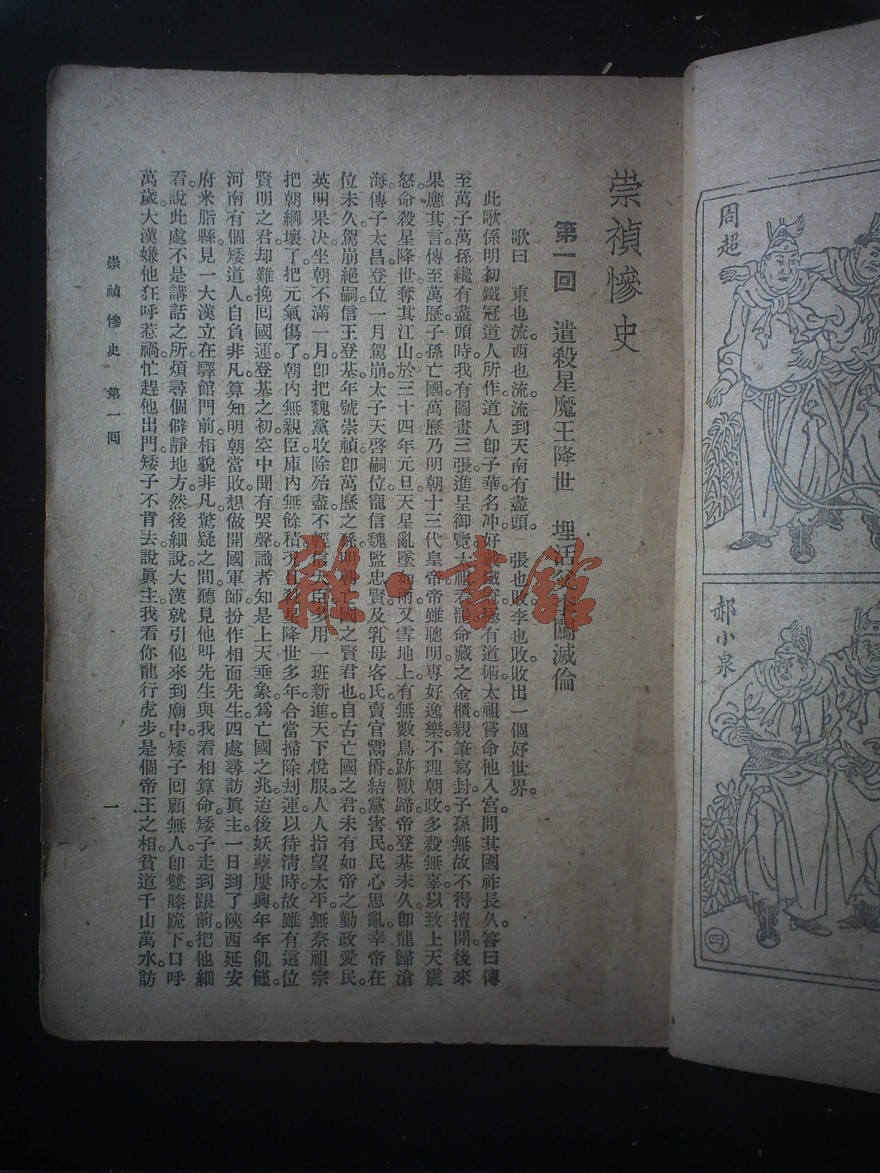 崇禎慘史
第一回 遣殺星魔王降世 埋活 闖滅倫
歌曰 東也流。西也流。流到天南有盡頭。張也敗。李也敗。敗出一個好世界。
此歌係明初鐵冠道人所作。道人卽子華。名冲。好 鐵冠。極有道術。太祖嘗命他入宮。問其國祚長久。答曰。傳
至萬子萬孫。纔有盡頭時。我有圖畫三張。進呈御覽。太祖 命藏之金櫃。親筆寫封。子孫無故不得擅開。後來
果應其言。傳至萬歷子孫亡國。萬歷乃明朝十三代皇帝。帝雖聰明。專好逸樂。不理朝政。多殺無辜。以致上天震
怒。命殺星降世。奪其江山。於三十四年元旦。天星亂墜如雨。又雪地上。有無數鳥跡獸蹄。帝登基未久。卽龍歸滄
海。傳子太昌。登位一月駕崩。太子天啓嗣位。寵信魏監忠賢。及乳母客氏。賣官鬻爵。結黨害民。民心思亂。幸帝在
位未久。駕崩絕嗣。信王登基。年號崇禎。卽萬歷之孫。明 亡國之賢君也。自古亡國之君。未有如帝之勤政愛民。
英明果决。坐朝不滿一月。卽把魏黨收除殆盡。不輕信大臣。多用一班新進。天下悅服。人人指望太平。無奈祖宗
把朝綱壞了。把元氣傷了。朝內無親臣。庫內無餘積。 殺星降世多年。合當掃除刦運。以待清時。故雖有這位
賢明之君。却難挽回國運。登基之初。空中聞有哭聲。識者知是上天垂象。爲亡國之兆。迨後妖孽屢興。年年飢饉。
河南有個矮道人。自負非凡。算知明朝當敗。想做開國軍師。扮作相面先生。四處尋訪眞主。一日到了陝西延安
府米脂縣。見一大漢。立在驛館門前。相貌非凡。驚疑之間。聽見他叫先生與我看相算命。矮子走到跟前。把他細
看。說此處不是講話之所。煩尋個僻靜地方。然後細說。大漢就引他來到廟中。矮子回顧無人。卽雙膝跪下。口呼
萬歲。大漢嫌他狂呼惹禍。忙趕他出門。矮子不肯去。說眞主。我看你龍行虎步。是個帝王之相。貧道千山萬水。訪
崇禎慘史 第一回 一
周超
郝小泉
四
雜·書館